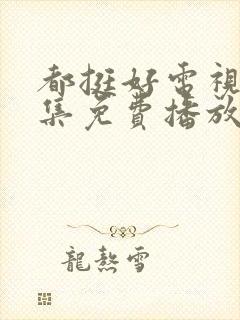 都挺好電視
集免費播放
龍熱雪